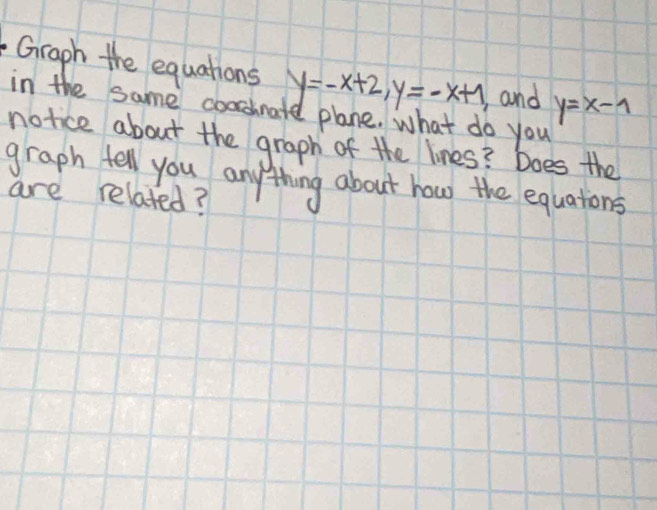 Graph the equations y=-x+2, y=-x+1, and y=x-1
in the same coordinate plane. What do you
notice about the graph of the lines? Does the
graph tell you anything about how the equations
are related?